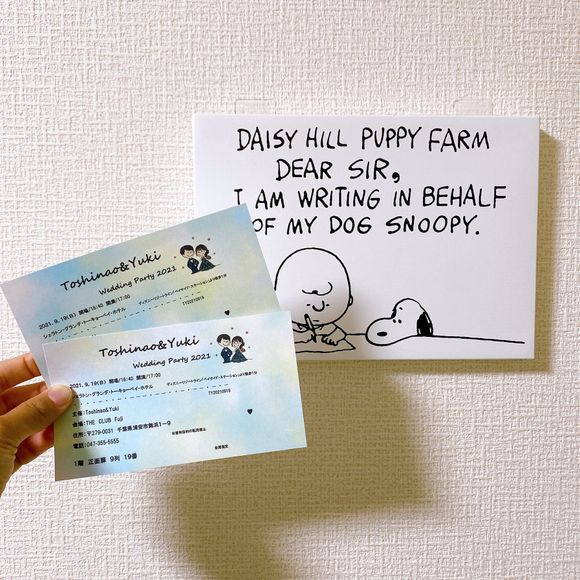 DAISY HILL PUPPY FARM
DEAR SIR,
I AM WRITING IN BEHALF
OF MY DOG SNOOPY.
Toshinao&Yuki
Wedding Party 2021
2021. 9. 19(日) 開場/16:40 開演/17:00
シェラトン・グランデ・トーキョーベイ・ホテル
ディズニーリゾートライン/ベイサイド・ステーションより徒歩1分
TY20210919
Toshinao&Yuki
Wedding Party 2021
2021. 9. 19(日) 開場/16:40 開演/17:00
シェラトン・グランデ・トーキョーベイ・ホテル
ディズニーリゾートライン/ベイサイド・ステーションより徒歩1分
TY20210919
主催:Toshinao&Yuki
会場:THE CLUB Fuji
住所:〒279-0031 千葉県浦安市舞浜1−9
電話:047-355-5555
1階 正面扉 9列 19番